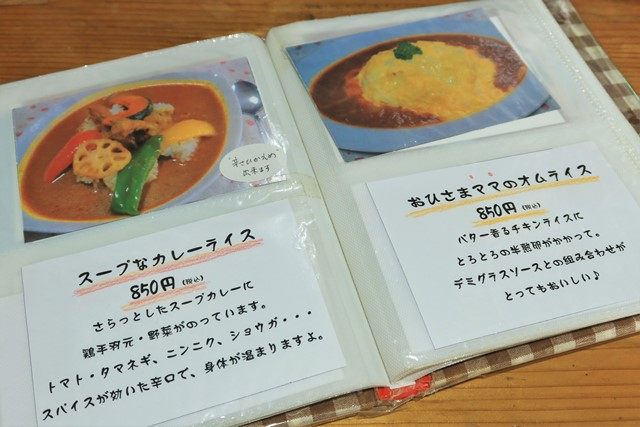 "辛さひかえめ"
出来ます
スープなカレーライス
850円(税込)
さらっとしたスープカレーに
鶏手羽元・野菜がのっています。
トマト・タマネギ、ニンニク、ショウガ・・・
スパイスが効いた辛口で、身体が温まりますよ。
おひさまママのオムライス
850円(税込)
バター香るチキンライスに
とろとろの半熟卵がかかって。
デミグラスソースとの組み合わせが
とってもおいしい♪